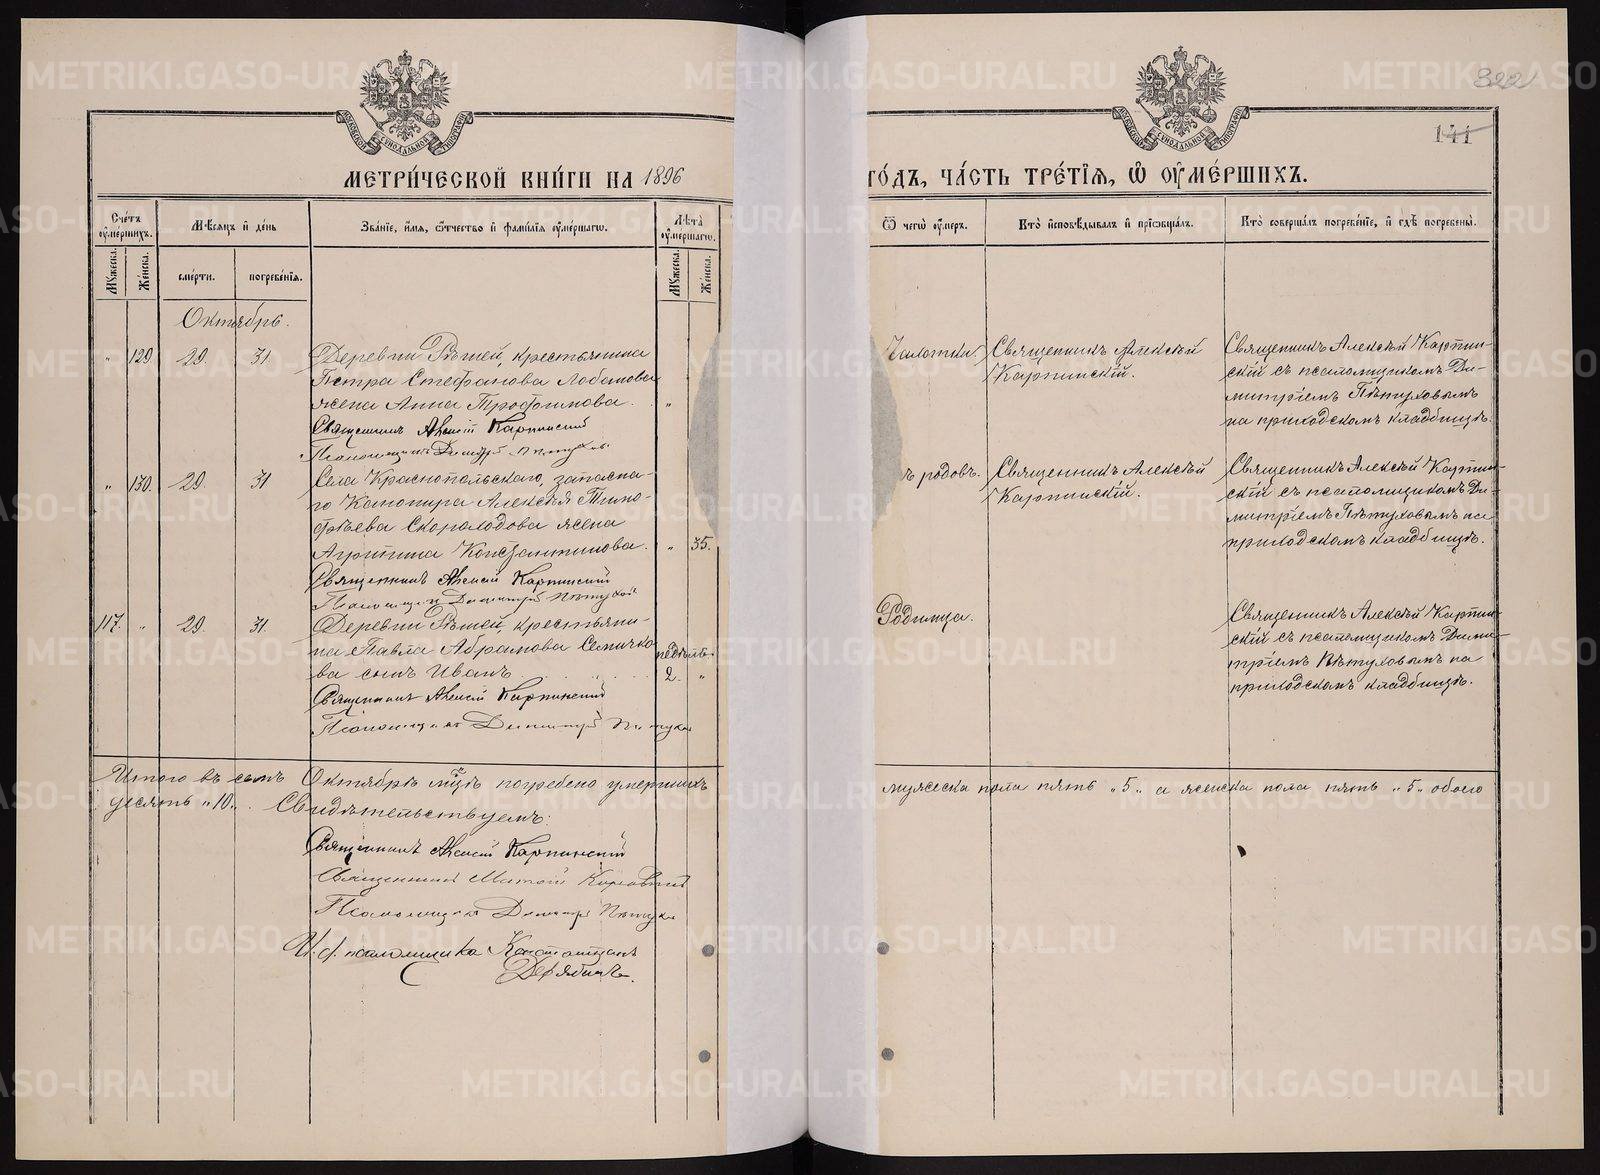 322
141
МЕТРИ́ЧЕСКОЙ КНИ́ГИ НА 1896
ГО́ДЪ, ЧА́СТЬ ТРЕ́ТІЯ, Ѽ ОУ҆МЕ́РШИХЪ.
Сче́тъ оу҆ме́ршихъ.
Мѣ́сяцъ и҆ де́нь
Зва́ніе, и҆́мя, ѻ҆́тчество и҆ фами́лія оу҆ме́ршагѡ.
Лѣ́та оу҆ме́ршагѡ.
Ѿ чегѡ̀ оу҆́меръ.
Кто̀ и҆сповѣ́дывалъ и҆ прїѡбща́лъ.
Кто̀ соверша́лъ погребе́ніе, и҆ гдѣ̀ погребены̀.
Му́жеска.
Же́нска.
сме́рти.
погребе́нія.
Му́жеска.
Же́нска.
Октябрь.
" 129 29. 31. Деревни Рѣшей, крестьянина
Петра Стефанова Лобанова
жена Анна Трофимова. "
Священникъ Алексій Карпинскій
Псаломщикъ Димитрій Пѣтухов
Чахотки.
Священникъ Алексѣй
Карпинскій.
Священникъ Алексѣй Карпин-
скій съ псаломщикомъ Ди-
митріемъ Пѣтуховымъ
на приходскомъ кладбищѣ.
" 130. 29. 31 Села Краснопольскаго, запасна-
го Канонира Алексѣя Тимо-
фѣева Скороходова жена
Агрипина Константинова. " 35.
Священникъ Алексій Карпинскій
Псаломщикъ Димитрій Пѣтухов
ъ родовъ.
Священникъ Алексѣй
Карпинскій.
Священникъ Алексѣй Карпин-
скій съ псаломщикомъ Ди-
митріемъ Пѣтуховымъ на
приходскомъ кладбищѣ.
117. " 29. 31. Деревни Рѣшей, крестьяни-
на Павла Абрамова Семичко недѣль.
ва сынъ Иванъ 2. "
Священникъ Алексій Карпинскій
Псаломщикъ Димитрій Пѣтухов
Родимца.
Священникъ Алексѣй Карпин-
скій съ псаломщикомъ Дими-
тріемъ Пѣтуховымъ на
приходскомъ кладбищѣ.
Итого въ семъ Октябрѣ мцѣ погребено умершихъ мужеска пола пять "5" а женска пола пять "5" обоего
десять "10". Свидѣтельствуемъ:
Священникъ Алексій Карпинскій
Священникъ
Псаломщикъ Димитрій Пѣтухов
И. д. псаломщика Константинъ
Дерябинъ.
METRIKI.GASO-URAL.RU